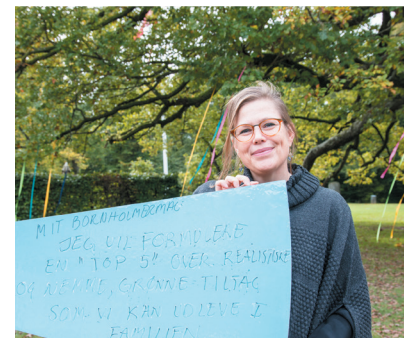 MIT BORNHOLMERMÅL
JEG VIL FORMULERE
EN "TOP 5" OVER REALISTISKE
OG NEMME, GRØNNE TILTAG
SOM VI KAN UDLEVE I
FAMILIEN.